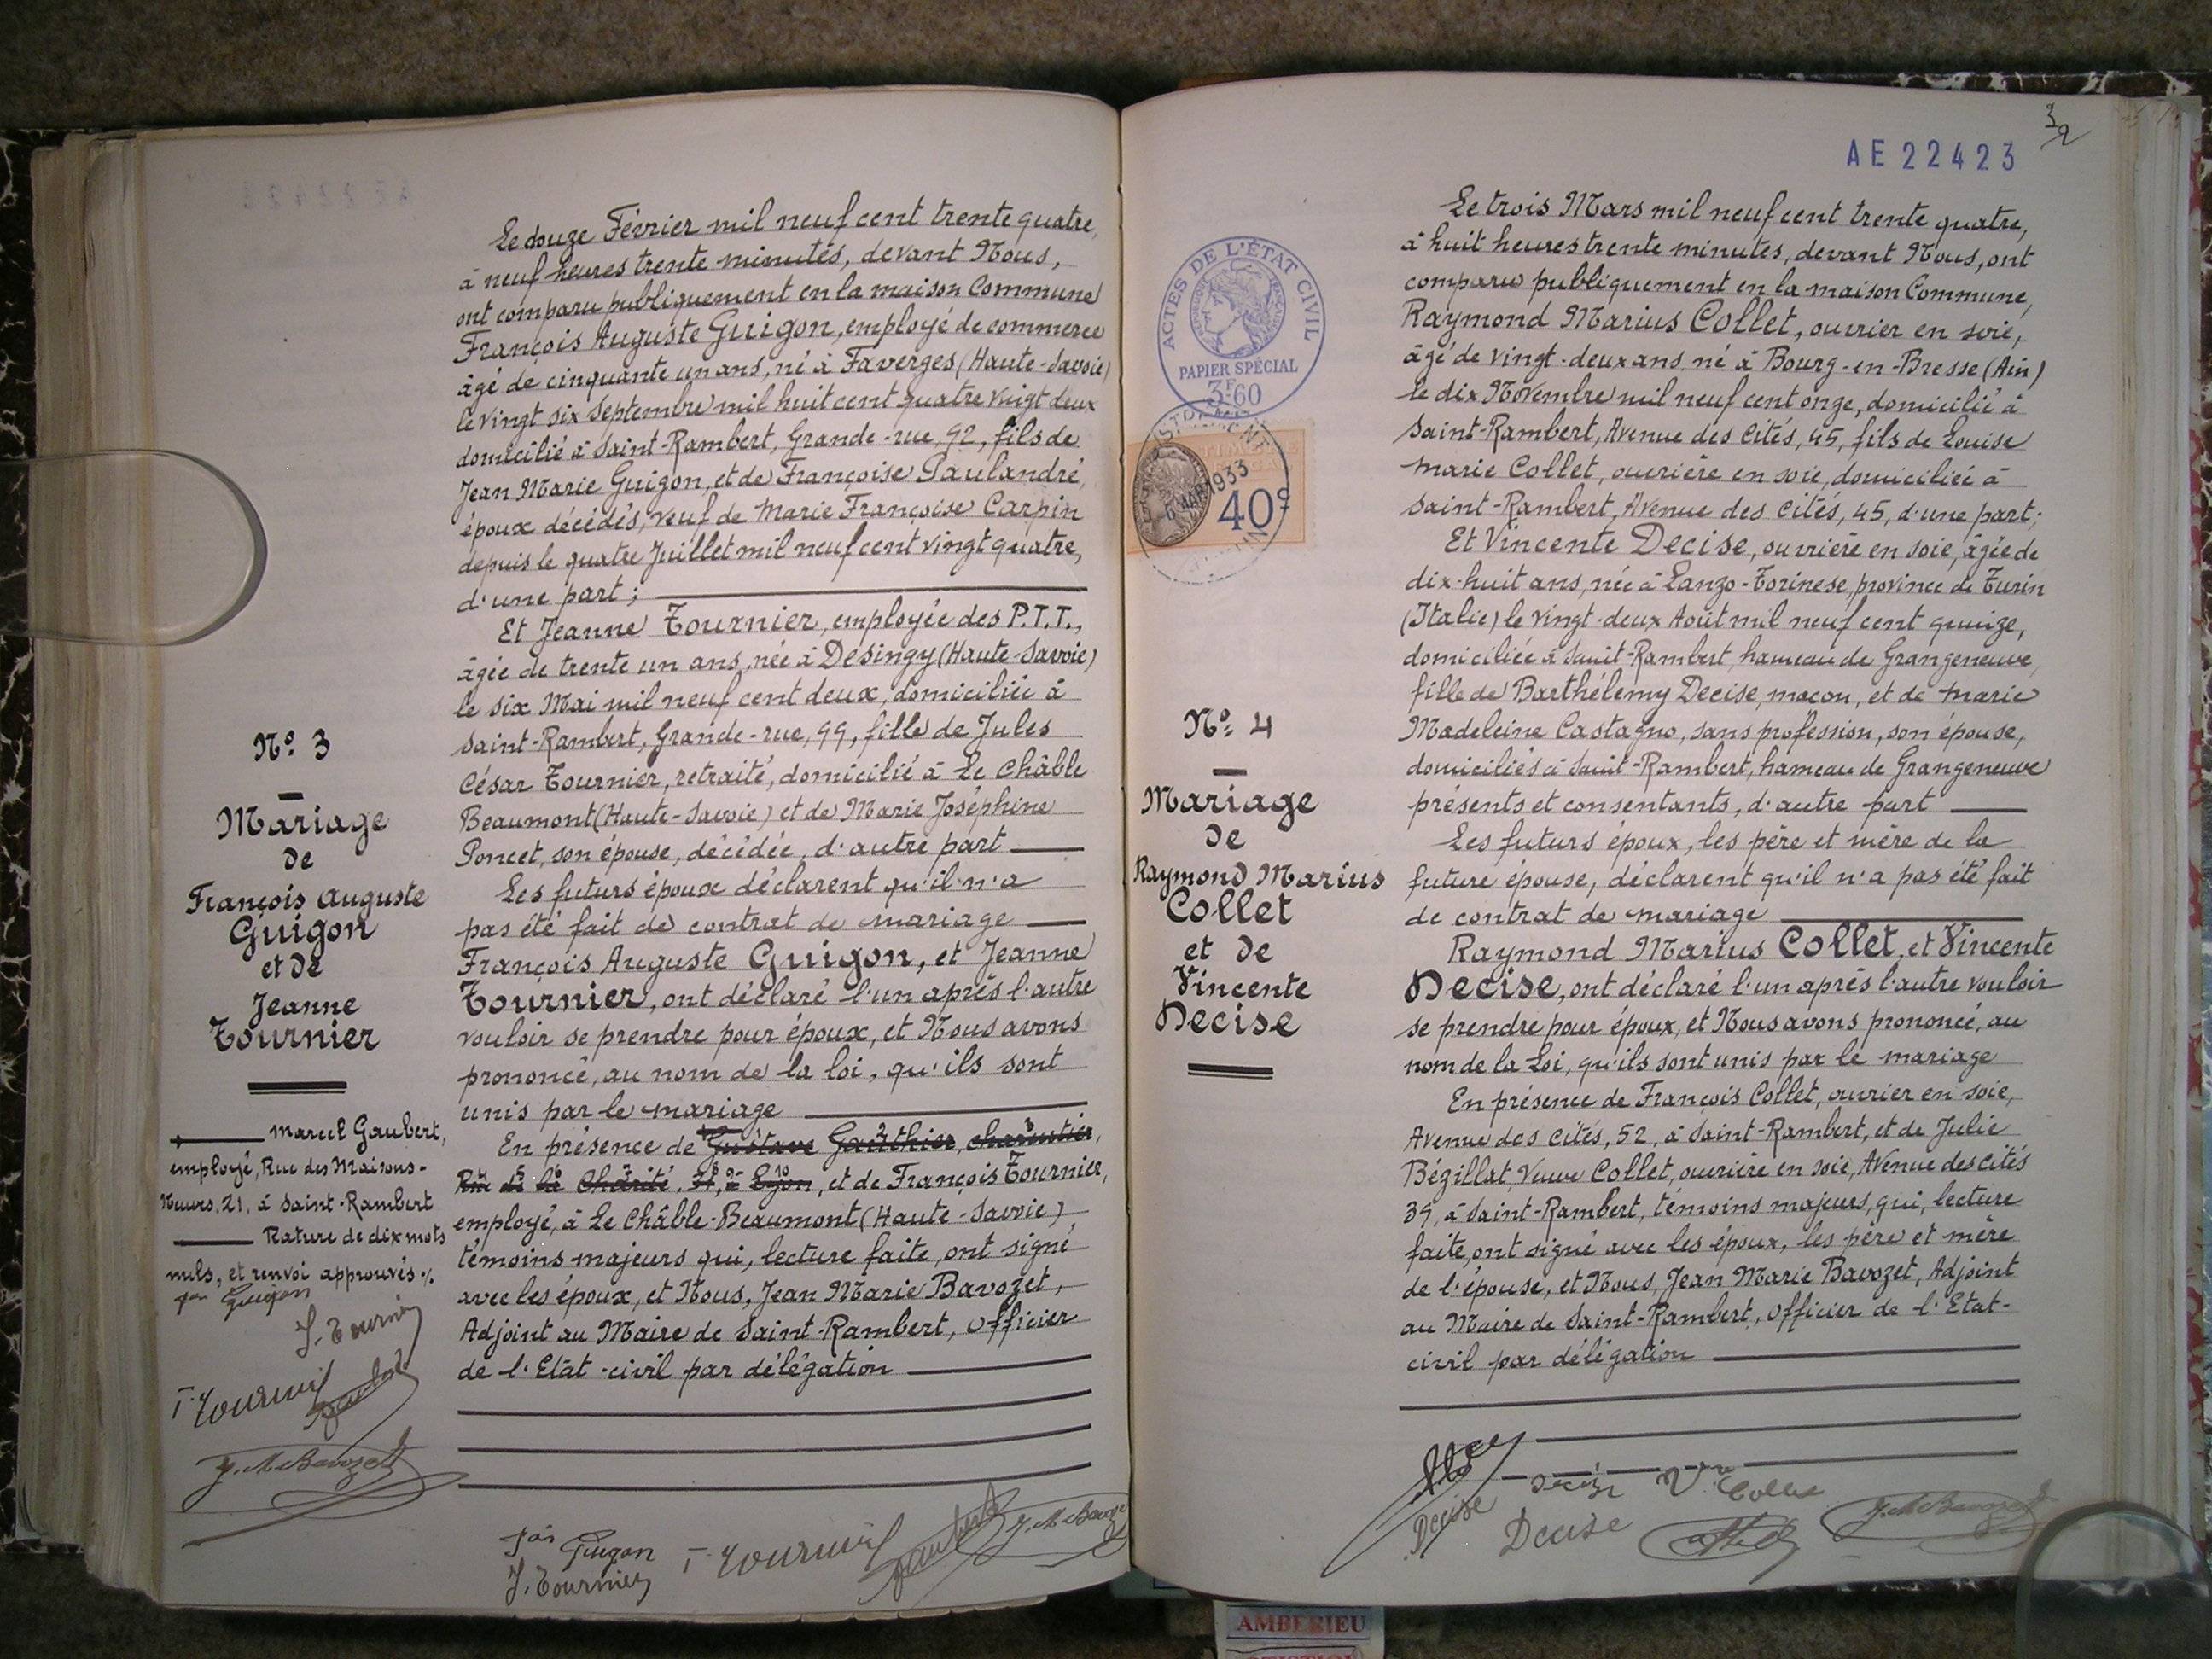 Le douze Février mil neuf cent trente quatre,
à neuf heures trente minutes, devant Nous,
ont comparu publiquement en la maison Commune
François Auguste Guigon, employé de commerce
âgé de cinquante un ans, né à Faverges (Haute-Savoie)
le vingt six Septembre mil huit cent quatre vingt deux
domicilié à Saint-Rambert, Grande-rue, 92, fils de
Jean Marie Guigon, et de Françoise Paulandré,
époux décédés, veuf de Marie Françoise Carpin
depuis le quatre Juillet mil neuf cent vingt quatre,
d'une part;
Et Jeanne Tournier, employée des P.T.T.,
âgée de trente un ans, née à Desingy (Haute-Savoie)
le six Mai mil neuf cent deux, domiciliée à
Saint-Rambert, Grande-rue, 99, fille de Jules
César Tournier, retraité, domicilié à Le Châble
Beaumont (Haute-Savoie) et de Marie Joséphine
Poncet, son épouse, décédée, d'autre part
Les futurs époux déclarent qu'il n'a
pas été fait de contrat de mariage
François Auguste Guigon, et Jeanne
Tournier, ont déclaré l'un après l'autre
vouloir se prendre pour époux, et Nous avons
prononcé, au nom de la loi, qu'ils sont
unis par le mariage
En présence de Gustave Gauthier, charcutier,
Rue de la Charité, à Lyon, et de François Tournier,
employé, à Le Châble-Beaumont (Haute-Savoie)
témoins majeurs qui, lecture faite, ont signé
avec les époux, et Nous, Jean Marie Bavozet,
Adjoint au Maire de Saint-Rambert, Officier
de l'Etat-civil par délégation
Guigon
J. Tournier
F. Tournier
J. M. Bavozet
No. 3
Mariage
de
François Auguste
Guigon
et de
Jeanne
Tournier
Marcel Gaubert,
employé, Rue des Maisons-
Neuves, 21, à Saint-Rambert
Rature de dix mots
nuls, et renvoi approuvés ./.
Guigon
J. Tournier
F. Tournier
J. M. Bavozet
3
2
AE 22423
ACTES DE L'ÉTAT CIVIL
PAPIER SPÉCIAL
3F60
1933
40c
No. 4
Mariage
de
Raymond Marius
Collet
et de
Vincente
Decise
Le trois Mars mil neuf cent trente quatre,
à huit heures trente minutes, devant Nous, ont
comparu publiquement en la maison Commune,
Raymond Marius Collet, ouvrier en soie,
âgé de vingt-deux ans né à Bourg-en-Bresse (Ain)
le dix Novembre mil neuf cent onze, domicilié à
Saint-Rambert, Avenue des Cités, 45, fils de Louise
Marie Collet, ouvrière en soie, domiciliée à
Saint-Rambert, Avenue des Cités, 45, d'une part;
Et Vincente Decise, ouvrière en soie, âgée de
dix-huit ans, née à Lanzo-Torinese, province de Turin
(Italie) le vingt-deux Août mil neuf cent quinze,
domiciliée à Saint-Rambert, hameau de Grangeneuve,
fille de Barthélemy Decise, maçon, et de Marie
Madeleine Castagno, sans profession, son épouse,
domiciliés à Saint-Rambert, hameau de Grangeneuve
présents et consentants, d'autre part
Les futurs époux, les père et mère de la
future épouse, déclarent qu'il n'a pas été fait
de contrat de mariage
Raymond Marius Collet, et Vincente
Decise, ont déclaré l'un après l'autre vouloir
se prendre pour époux, et Nous avons prononcé, au
nom de la Loi, qu'ils sont unis par le mariage
En présence de François Collet, ouvrier en soie,
Avenue des Cités, 52, à Saint-Rambert, et de Julie
Bézillat, Veuve Collet, ouvrière en soie, Avenue des Cités
39, à Saint-Rambert, témoins majeurs, qui, lecture
faite, ont signé avec les époux, les père et mère
de l'épouse, et Nous, Jean Marie Bavozet, Adjoint
au Maire de Saint-Rambert, Officier de l'Etat-
civil par délégation
Vve Collet
Decise
Decise
J. M. Bavozet
AMBERIEU